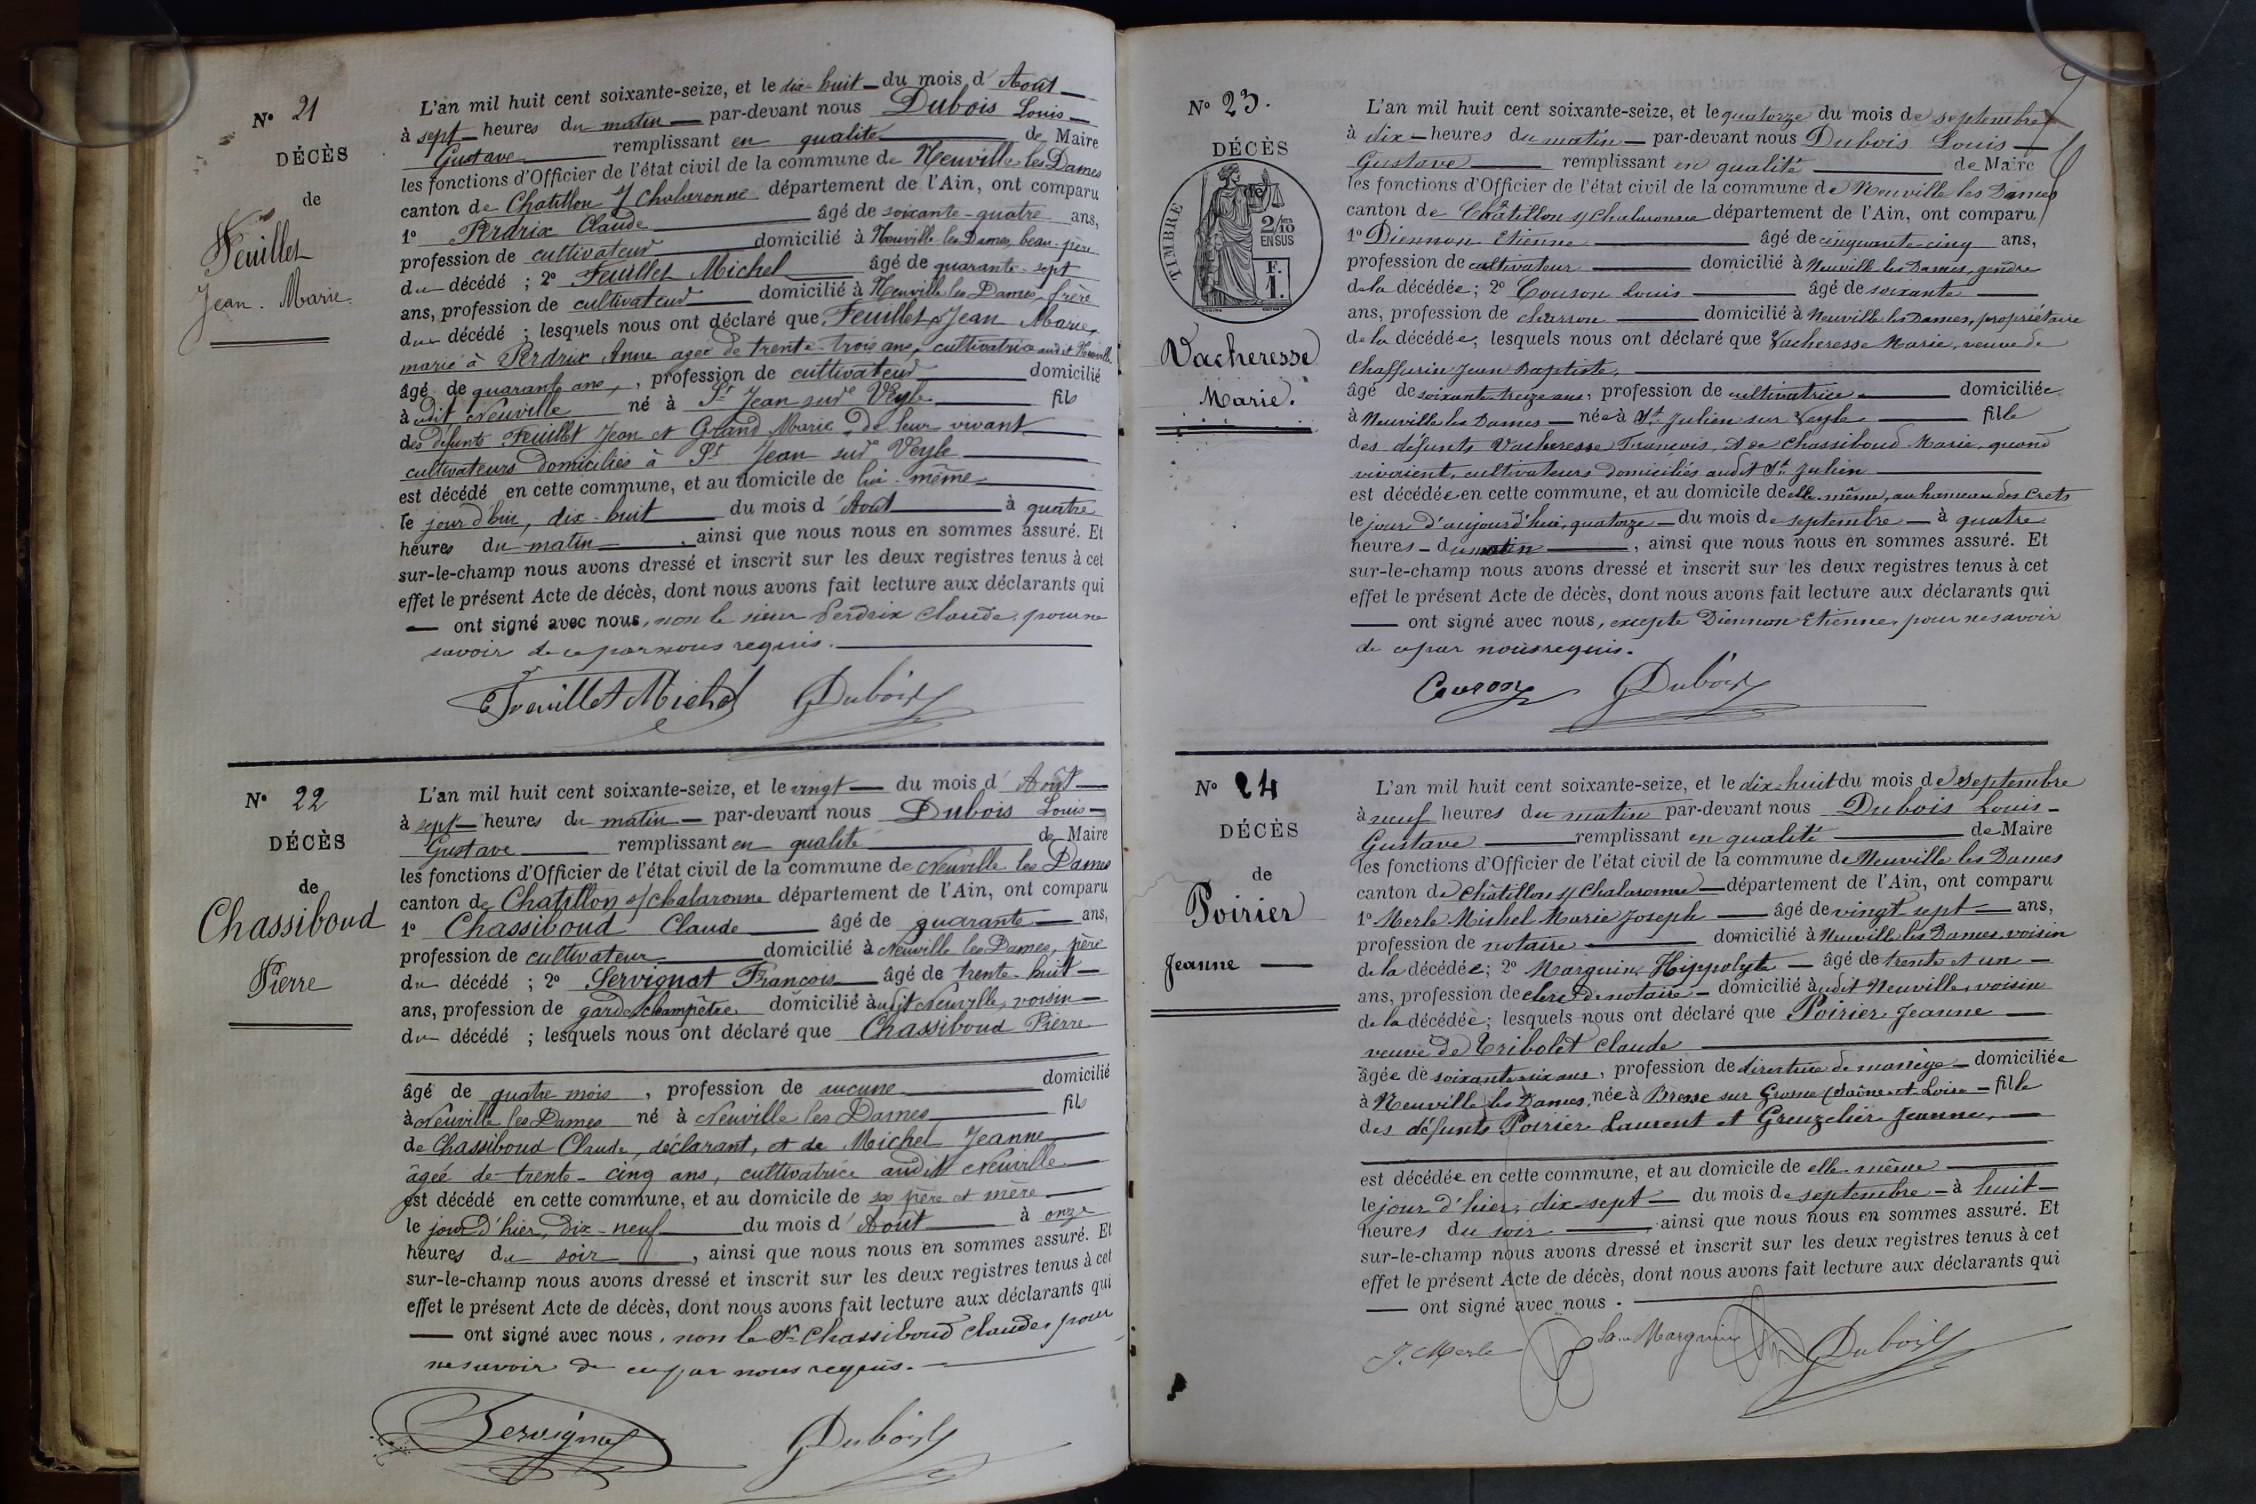 N° 21
DÉCÈS
de
Feuillet
Jean-Marie.
L'an mil huit cent soixante-seize, et le dix-huit du mois d'Août
à sept heures du matin par-devant nous Dubois Louis
Gustave remplissant en qualité de Maire
les fonctions d'Officier de l'état civil de la commune de Neuville les Dames
canton de Chatillon s/ Chalaronne département de l'Ain, ont comparu
1° Perdrix Claude âgé de soixante-quatre ans,
profession de cultivateur domicilié à Neuville les Dames, beau-père
du décédé ; 2° Feuillet Michel âgé de quarante-sept
ans, profession de cultivateur domicilié à Neuville les Dames, frère
du décédé ; lesquels nous ont déclaré que Feuillet Jean Marie,
marié à Perdrix Anne agée de trente-trois ans, cultivatrice audit Neuville
âgé de quarante ans, profession de cultivateur domicilié
à udit Neuville né à St Jean sur Veyle fils
des défunts Feuillet Jean et Grand Marie, de leur vivant
cultivateurs domiciliés à St Jean sur Veyle
est décédé en cette commune, et au domicile de lui-même
le jour d'hui, dix-huit du mois d'Août à quatre
heures du matin, ainsi que nous nous en sommes assuré. Et
sur-le-champ nous avons dressé et inscrit sur les deux registres tenus à cet
effet le présent Acte de décès, dont nous avons fait lecture aux déclarants qui
— ont signé avec nous, non le sieur Perdrix Claude, pour ne
savoir de ce par nous requis.
Feuillet Michel GDubois
N° 22
DÉCÈS
de
Chassiboud
Pierre
L'an mil huit cent soixante-seize, et le vingt du mois d'Août
à sept heures du matin par-devant nous Dubois Louis
Gustave remplissant en qualité de Maire
les fonctions d'Officier de l'état civil de la commune de Neuville les Dames
canton de Chatillon s/ Chalaronne département de l'Ain, ont comparu
1° Chassiboud Claude âgé de quarante ans,
profession de cultivateur domicilié à Neuville les Dames, père
du décédé ; 2° Servignat François âgé de trente-huit
ans, profession de garde champêtre domicilié àudit Neuville, voisin
du décédé ; lesquels nous ont déclaré que Chassiboud Pierre
âgé de quatre mois, profession de aucune domicilié
à Neuville les Dames né à Neuville les Dames fils
de Chassiboud Claude, déclarant, et de Michel Jeanne
âgée de trente-cinq ans, cultivatrice audit Neuville
est décédé en cette commune, et au domicile de ses père et mère
le jour d'hier, dix-neuf du mois d'Août à onze
heures du soir, ainsi que nous nous en sommes assuré. Et
sur-le-champ nous avons dressé et inscrit sur les deux registres tenus à cet
effet le présent Acte de décès, dont nous avons fait lecture aux déclarants qui
— ont signé avec nous, non le Sr Chassiboud Claude, pour
ne savoir de ce par nous requis.
Servignat GDubois
N° 23.
DÉCÈS
TIMBRE
2/10 EN SUS
F.
1.
Vacheresse
Marie.
L'an mil huit cent soixante-seize, et le quatorze du mois de septembre
à dix heures du matin par-devant nous Dubois Louis
Gustave remplissant en qualité de Maire
les fonctions d'Officier de l'état civil de la commune de Neuville les Dames
canton de Châtillon s/ Chalaronne département de l'Ain, ont comparu
1° Diennon Etienne âgé de cinquante-cinq ans,
profession de cultivateur domicilié à Neuville les Dames, gendre
de la décédée ; 2° Couson Louis âgé de soixante
ans, profession de charron domicilié à Neuville les Dames, propriétaire
de la décédée, lesquels nous ont déclaré que Vacheresse Marie, veuve de
Chaffurin Jean Baptiste,
âgé de soixante treize ans, profession de cultivatrice domiciliée
à Neuville les Dames née à St Julien sur Veyle fille
des défunts Vacheresse François, et de Chassiboud Marie, quand
vivaient, cultivateurs domiciliés audit St Julien
est décédée en cette commune, et au domicile de elle-même, au hameau des Crets
le jour d'aujourd'hui, quatorze du mois de septembre à quatre
heures du matin, ainsi que nous nous en sommes assuré. Et
sur-le-champ nous avons dressé et inscrit sur les deux registres tenus à cet
effet le présent Acte de décès, dont nous avons fait lecture aux déclarants qui
— ont signé avec nous, excepté Diennon Etienne, pour ne savoir
de ce par nous requis.
Couson GDubois
N° 24
DÉCÈS
de
Poirier
Jeanne
L'an mil huit cent soixante-seize, et le dix-huit du mois de septembre
à neuf heures du matin par-devant nous Dubois Louis
Gustave remplissant en qualité de Maire
les fonctions d'Officier de l'état civil de la commune de Neuville les Dames
canton de Châtillon s/ Chalaronne département de l'Ain, ont comparu
1° Merle Michel Marie Joseph âgé de vingt-sept ans,
profession de notaire domicilié à Neuville les Dames, voisin
de la décédée ; 2° Marguin Hippolyte âgé de trente et un
ans, profession de clerc de notaire domicilié àudit Neuville, voisin
de la décédée ; lesquels nous ont déclaré que Poirier Jeanne
veuve de Tribolet Claude
âgée de soixante six ans, profession de directrice de manège domiciliée
à Neuville les Dames, née à Bresse sur Grosne (Saône et Loire fille
des défunts Poirier Laurent et Greuzelier Jeanne,
est décédée en cette commune, et au domicile de elle-même
le jour d'hier, dix-sept du mois de septembre à huit
heures du soir, ainsi que nous nous en sommes assuré. Et
sur-le-champ nous avons dressé et inscrit sur les deux registres tenus à cet
effet le présent Acte de décès, dont nous avons fait lecture aux déclarants qui
— ont signé avec nous.
J. Merle Marguin GDubois